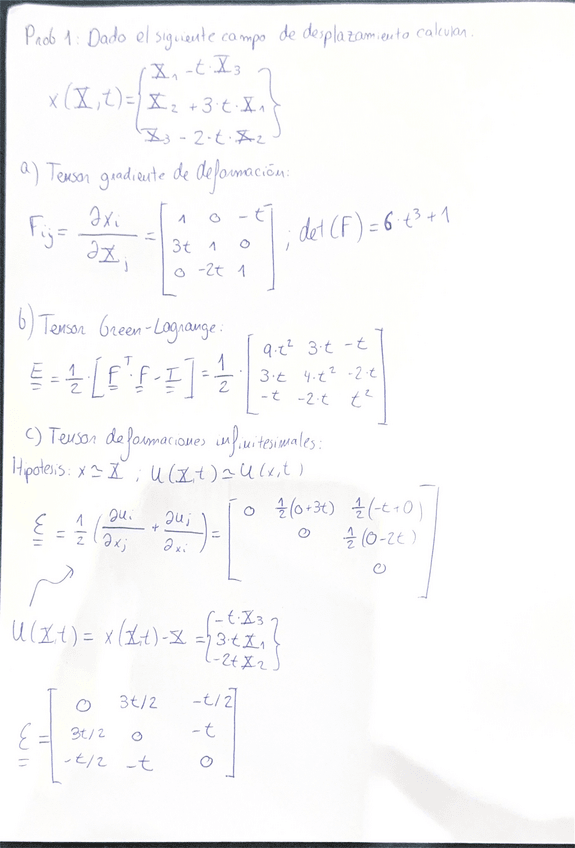 Prob 1: Dado el siguiente campo de desplazamiento calcular.
x(X,t)={X₁ -t·X₃
X₂ + 3·t·X₁
X₃ - 2·t·X₂}
a) Tensor gradiente de deformación:
Fij = ∂xi/∂Xj = [1 0 -t
3t 1 0
0 -2t 1] ; det(F) = 6·t³+1
b) Tensor Green-Lagrange:
E = 1/2·[Fᵀ·F - I] = 1/2·[9·t² 3·t -t
3·t 4·t² -2·t
-t -2·t t²]
c) Tensor deformaciones infinitesimales:
Hipotesis: x≃X ; U(X,t)≃U(x,t)
ε = 1/2(∂ui/∂xj + ∂uj/∂xi) = [0 1/2(0+3t) 1/2(-t+0)
0 1/2(0-2t)
0]
U(X,t) = x(X,t)-X = {-t·X₃
3·t X₁
-2t X₂}
ε = [0 3t/2 -t/2
3t/2 0 -t
-t/2 -t 0]